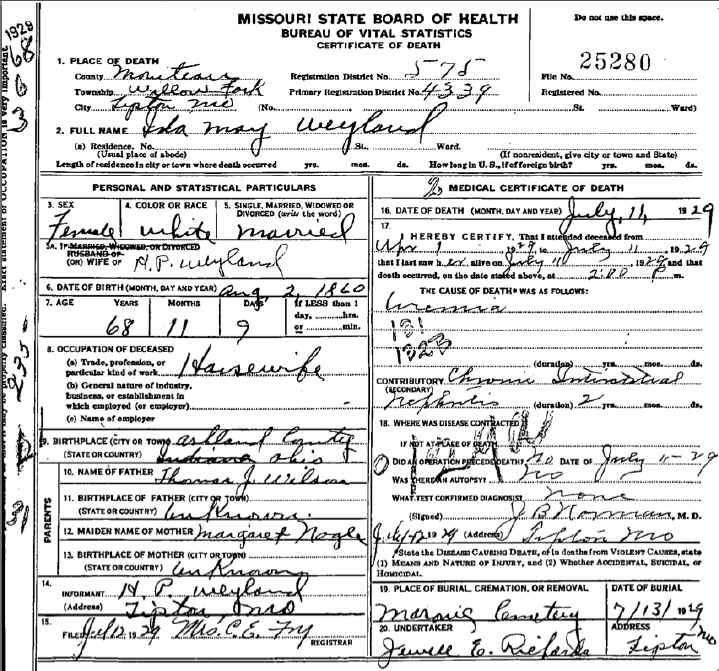 1929
MISSOURI STATE BOARD OF HEALTH
BUREAU OF VITAL STATISTICS
CERTIFICATE OF DEATH
Do not use this space.
1. PLACE OF DEATH
County Moniteau Registration District No. 575 File No. 25280
Township Willow Fork Primary Registration District No. 4339 Registered No.
City Tipton Mo (No. St. Ward)
2. FULL NAME Ida May Weyland
(a) Residence. No. St. Ward.
(Usual place of abode) (If nonresident, give city or town and State)
Length of residence in city or town where death occurred yrs. mos. ds. How long in U.S., if of foreign birth? yrs. mos. ds.
PERSONAL AND STATISTICAL PARTICULARS
3. SEX 4. COLOR OR RACE 5. SINGLE, MARRIED, WIDOWED OR DIVORCED (write the word)
Female White Married
5A. IF MARRIED, WIDOWED, OR DIVORCED
HUSBAND OF
(OR) WIFE OF H. P. Weyland
6. DATE OF BIRTH (MONTH, DAY AND YEAR) Aug 2, 1860
7. AGE YEARS MONTHS DAYS If LESS than 1
day, hrs.
68 11 9 or min.
8. OCCUPATION OF DECEASED
(a) Trade, profession, or
particular kind of work Housewife
(b) General nature of industry,
business, or establishment in
which employed (or employer)
(c) Name of employer
9. BIRTHPLACE (CITY OR TOWN) Ashland County
(STATE OR COUNTRY) Indiana Ohio
PARENTS
10. NAME OF FATHER Thomas J. Wilson
11. BIRTHPLACE OF FATHER (CITY OR TOWN)
(STATE OR COUNTRY) Unknown.
12. MAIDEN NAME OF MOTHER Margaret Nagle
13. BIRTHPLACE OF MOTHER (CITY OR TOWN)
(STATE OR COUNTRY) Unknown
14.
INFORMANT H. P. Weyland
(Address) Tipton, Mo
15.
FILED Jul 12 1929 Mrs. C. E. Fry
REGISTRAR
MEDICAL CERTIFICATE OF DEATH
16. DATE OF DEATH (MONTH, DAY AND YEAR) July, 11, 1929
17.
I HEREBY CERTIFY, That I attended deceased from
Apr 1 1929, to July 11 1929
that I last saw her alive on July 11 1929 and that
death occurred, on the date stated above, at 2:00 P m.
THE CAUSE OF DEATH* WAS AS FOLLOWS:
Uremia
131
(duration) yrs. mos. ds.
CONTRIBUTORY Chronic Interstitial
(SECONDARY)
Nephritis (duration) 2 yrs. mos. ds.
18. WHERE WAS DISEASE CONTRACTED
IF NOT AT PLACE OF DEATH
DID AN OPERATION PRECEDE DEATH? No DATE OF July 11-29
WAS THERE AN AUTOPSY? No
WHAT TEST CONFIRMED DIAGNOSIS? None
(Signed) J B Norman, M. D.
1929 (Address) Tipton Mo
*State the DISEASE CAUSING DEATH, or in deaths from VIOLENT CAUSES, state
(1) MEANS AND NATURE OF INJURY, and (2) Whether ACCIDENTAL, SUICIDAL, or
HOMICIDAL.
19. PLACE OF BURIAL, CREMATION, OR REMOVAL DATE OF BURIAL
Masonic Cemetery 7/13/1929
20. UNDERTAKER ADDRESS
Jewell E. Richards Tipton Mo